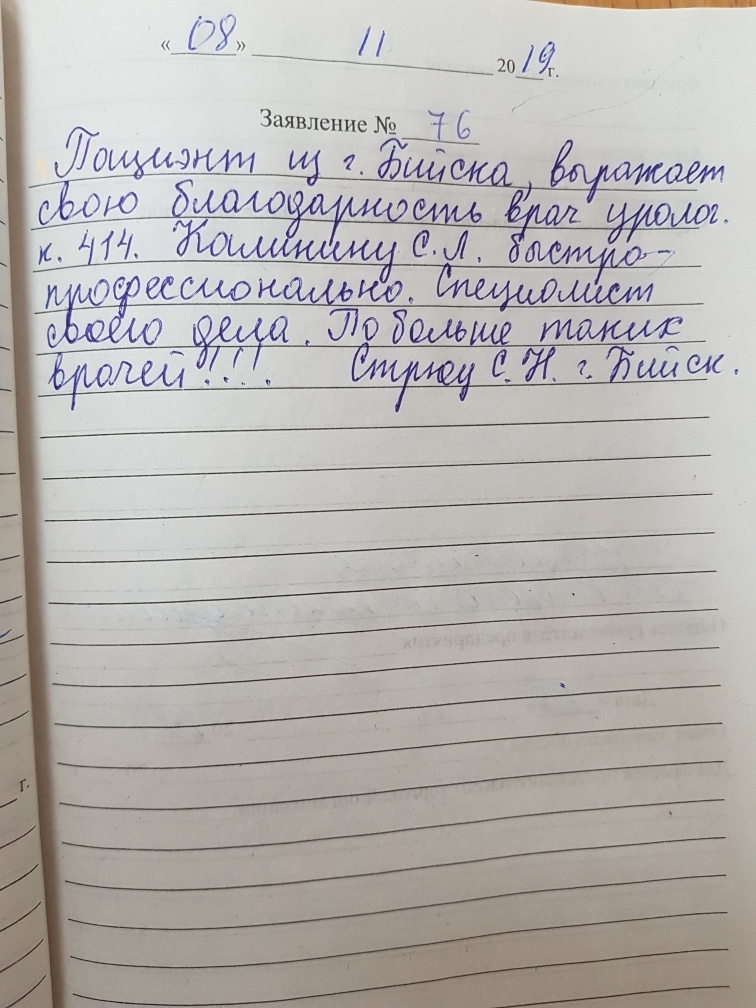 «08» 11 2019 г.
Заявление № 76
Пациэнт из г. Бийска, выражает
свою благодарность врач уролог.
к. 414. Калинину С.Л. быстро-
профессионально. Специолист
своего дела. По больше таких
врачей!!!!. С.Н. г. Бийск.
г.